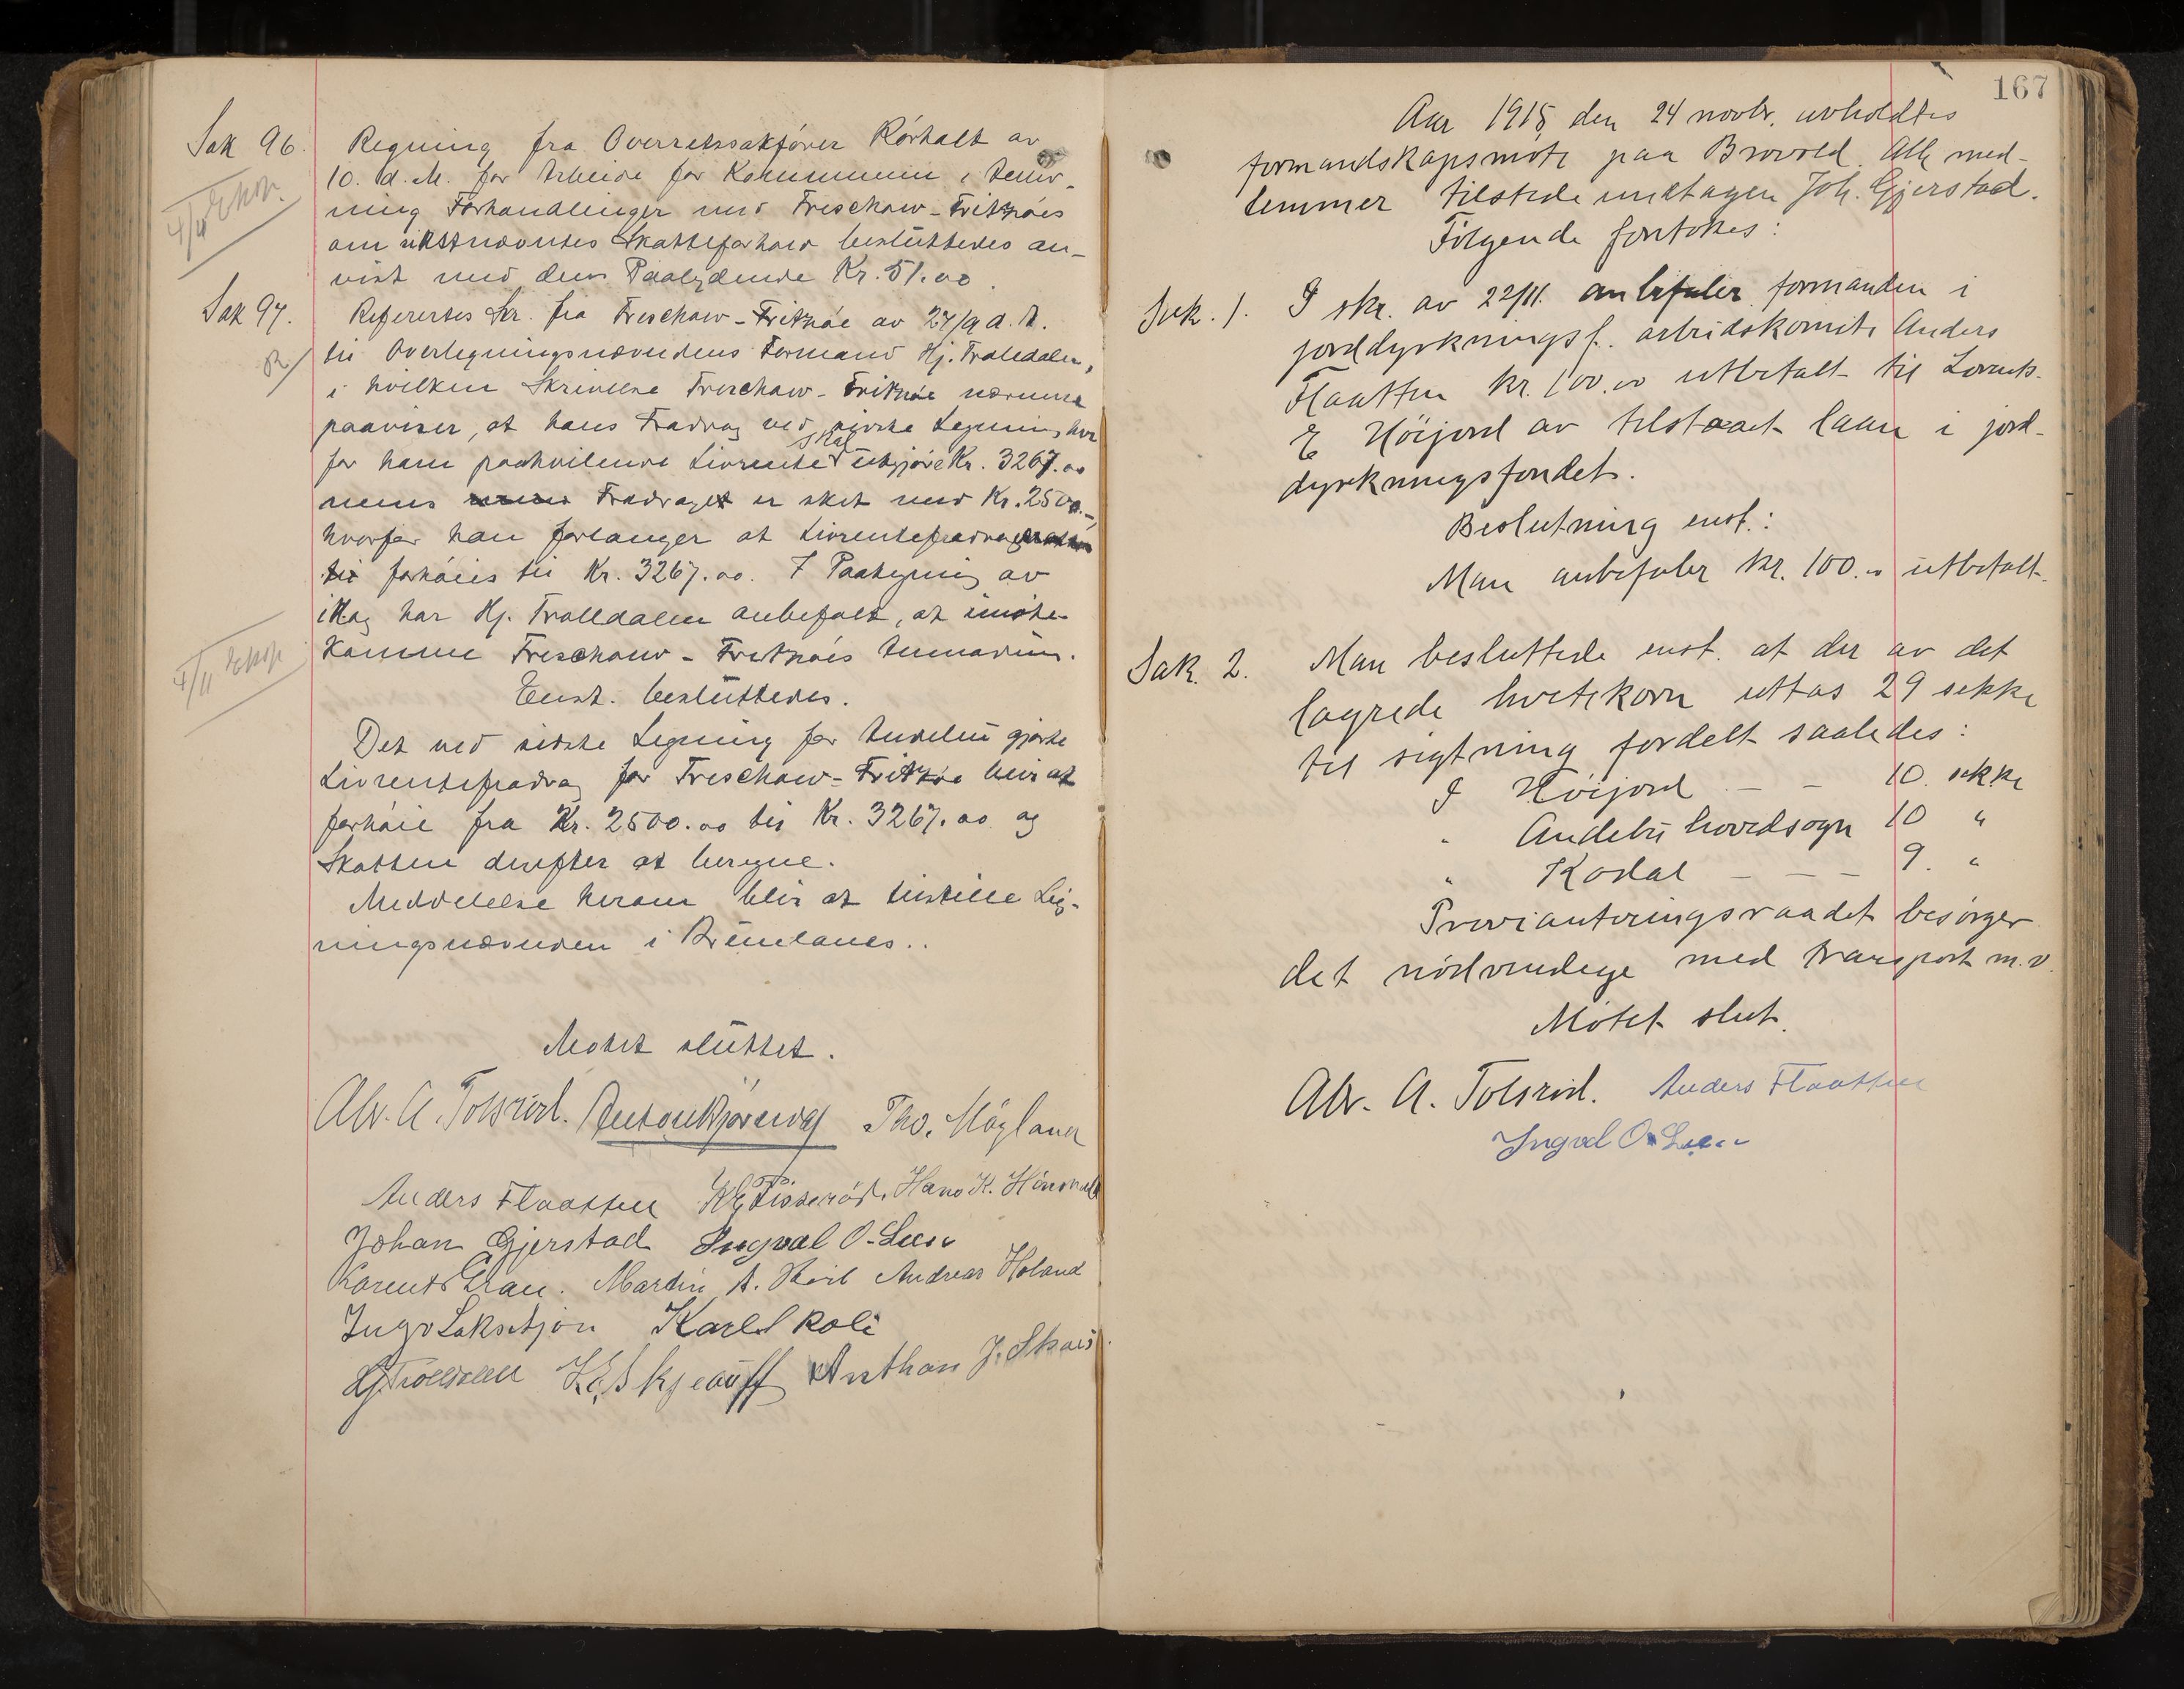 Sak 96. Regning fra Overretssakfører Rørholt av
10. d.M. for Arbeide for Kommunen i Anled-
4/11 Eksp.
ning Forhandlinger med Treschow-Fritzøes
om sidstnævntes Skatteforhold besluttedes an-
vist med dens Paalydende Kr. 51.00.
Sak 97. Referertes Skr. fra Treschow-Fritzøe av 27/9 d. A.
til Overligningsnævndens Formand Hj. Trolldalen,
i hvilken Skrivelse Treschow-Fritzøe nærmere
paaviser, at hans Fradrag ved sidste Ligning her
for ham paahvilende Livrente skal utgjøre Kr. 3267.00
mens Fradraget er sket med Kr. 2500.-,
hvorfor han forlanger at Livrentefradraget
forhøies til Kr. 3267.00. I Paategning av
idag har Hj. Trolldalen anbefalt, at imøte-
4/11 Eksp.
komme Treschow-Fritzøes Anmodning.
Enst. besluttedes.
Det ved sidste Ligning for Andebu gjorte
Livrentefradrag for Treschow-Fritzøe blir at
forhøie fra Kr. 2500.00 til Kr. 3267.00 og
Skatten derefter at beregne.
Meddelelse herom blir at tilstille Lig-
ningsnævnden i Brunlanes..
Møtet sluttet.
Alv. A. Tolsrød. Anton Kjøravdg Tho. Møyland
Anders Flaatten K. E. Tisserød. Hans K. Hinvald
Johan Gjerstad Ingval O. Lien
Martin A. Andreas Holand
Ingv Laksesjøn Karl Roli
Hj. Trolldalen K. E. Skjeauff Anthon J. Skaui
167
Aar 1915, den 24 novbr. avholdtes
formandskapsmøte paa Brovold. Alle med-
lemmer tilstede undtagen Joh. Gjerstad.
Følgende foretokes:
Sak. 1. I skr. av 22/11. anbefaler formanden i
jorddyrkningsf. arbeidskomite Anders
Flaatten kr. 100.00 utbetalt til Lorents
E Høijord av tilstaaet laan i jord-
dyrkningsfondet.
Beslutning enst.:
Man anbefaler kr. 100.00 utbetalt.
Sak. 2. Man besluttede enst. at der av det
lagrede hvetekorn uttas 29 sekke
til sigtning fordelt saaledes:
I Høijord — — 10. sekke
" Andebu hovedsogn 10 "
" Kodal — — — 9. "
Provianteringsraadet besørger
det nødvendige med transport m.v.
Møtet slut.
Alv. A. Tolsrød. Anders Flaatten
Ingval O. Lien